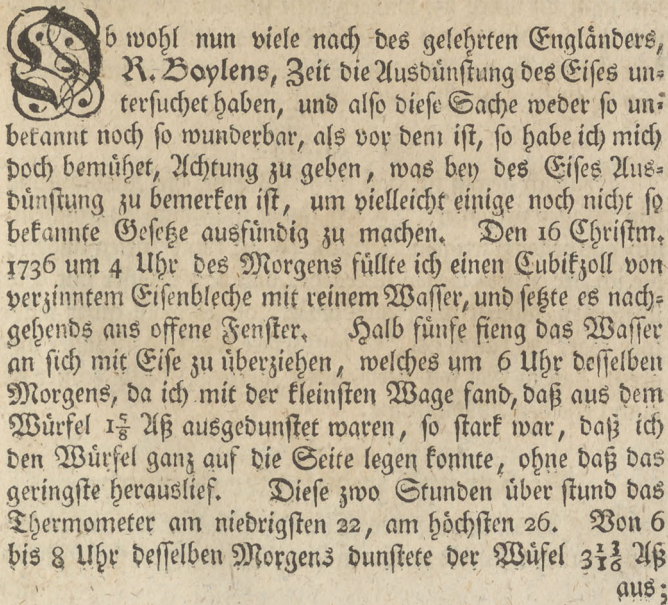 Ob wohl nun viele nach des gelehrten Engländers,
R. Boylens, Zeit die Ausdünstung des Eises un-
tersuchet haben, und also diese Sache weder so un-
bekannt noch so wunderbar, als vor dem ist, so habe ich mich
doch bemühet, Achtung zu geben, was bey des Eises Aus-
dünstung zu bemerken ist, um vielleicht einige noch nicht so
bekannte Gesetze ausfündig zu machen. Den 16 Christm.
1736 um 4 Uhr des Morgens füllte ich einen Cubikzoll von
verzinntem Eisenbleche mit reinem Wasser, und setzte es nach-
gehends ans offene Fenster. Halb fünfe fieng das Wasser
an sich mit Eise zu überziehen, welches um 6 Uhr desselben
Morgens, da ich mit der kleinsten Wage fand, daß aus dem
Würfel 1 5/8 Aß ausgedunstet waren, so stark war, daß ich
den Würfel ganz auf die Seite legen konnte, ohne daß das
geringste herauslief. Diese zwo Stunden über stund das
Thermometer am niedrigsten 22, am höchsten 26. Von 6
bis 8 Uhr desselben Morgens dunstete der Wüfel 3 13/16 Aß
aus;